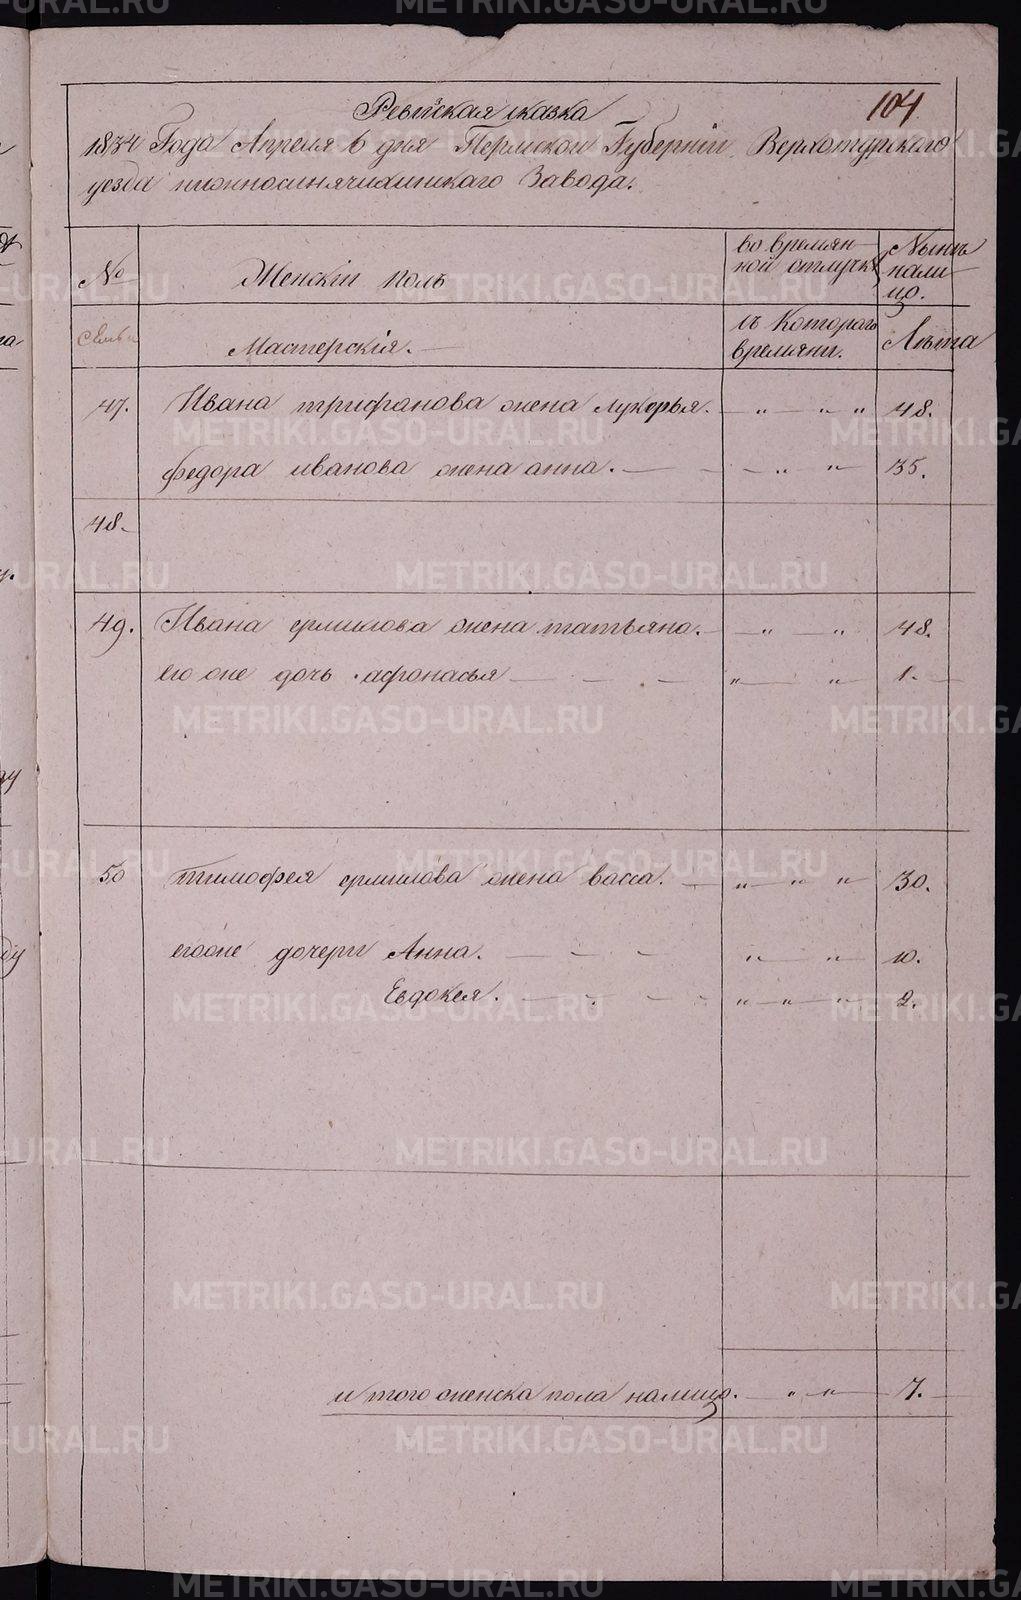 Ревизская сказка
104
1834 Года Апреля 6 дня Пермской Губернiи Верхотурского
уезда нижносинячихинскаго Завода.
№
Женскiи полъ
во времян-
ной отлучке
Ныне
нали-
цо.
семьи
Мастерскiя.
съ Котораго
времяни.
Лета
47. Ивана трифанова жена лукерья. — " — " " 48.
федора иванова жена анна. — " " 35.
48.
49. Ивана ермилова жена татьяна. — " — " 48.
его же дочь афонасья — — — " — " 1.
50 тимофея ермилова жена васса. — " — " " 30.
егоже дочери Анна. — — — " — " 10.
Евдокея. — — — " — " — " 2.
и того женска пола налицо. — " " — 7.
METRIKI.GASO-URAL.RU